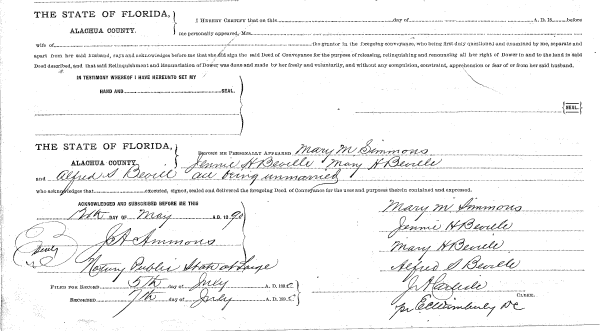 THE STATE OF FLORIDA,
ALACHUA COUNTY.
I HEREBY CERTIFY that on this day of A. D. 18 before
me personally appeared, Mrs.
wife of the grantor in the foregoing conveyance, who being first duly questioned and examined by me, separate and
apart from her said husband, says and acknowledges before me that she did sign the said Deed of Conveyance for the purpose of releasing, relinquishing and renouncing all her right of Dower in and to the land in said
Deed described, and that said Relinquishment and Renunciation of Dower was done and made by her freely and voluntarily, and without any compulsion, constraint, apprehension or fear of or from her said husband.
IN TESTIMONY WHEREOF I HAVE HEREUNTO SET MY
HAND AND SEAL.
SEAL.
THE STATE OF FLORIDA,
ALACHUA COUNTY.
BEFORE ME PERSONALLY APPEARED Mary M Simmons
Jennie H Beville Mary H Beville
and Alfred S Bevill all being unmarried
who acknowledges that executed, signed, sealed and delivered the foregoing Deed of Conveyance for the uses and purposes therein contained and expressed.
ACKNOWLEDGED AND SUBSCRIBED BEFORE ME THIS
DAY OF May A. D. 18 90
J A Ammons
Notary Public State at Large
FILED FOR RECORD 5th day of July A. D. 18
RECORDED 7th day of July A. D. 18
Mary M Simmons
Jennie H Beville
Mary H Beville
Alfred S Beville
J A Carlisle
CLERK.
pr E C Wimberly DC